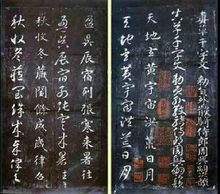 真草千字文 勅員外散騎侍郎周興嗣次韻
千字文 勅員外散騎侍郎周興嗣次韻
天地玄黃宇宙洪荒日月
天地玄黃宇宙洪荒日月
盈昃辰宿列張寒來暑往
盈昃辰宿列張寒來暑往
秋收冬藏閏餘成歲律呂
秋收冬藏閏餘成歲律呂